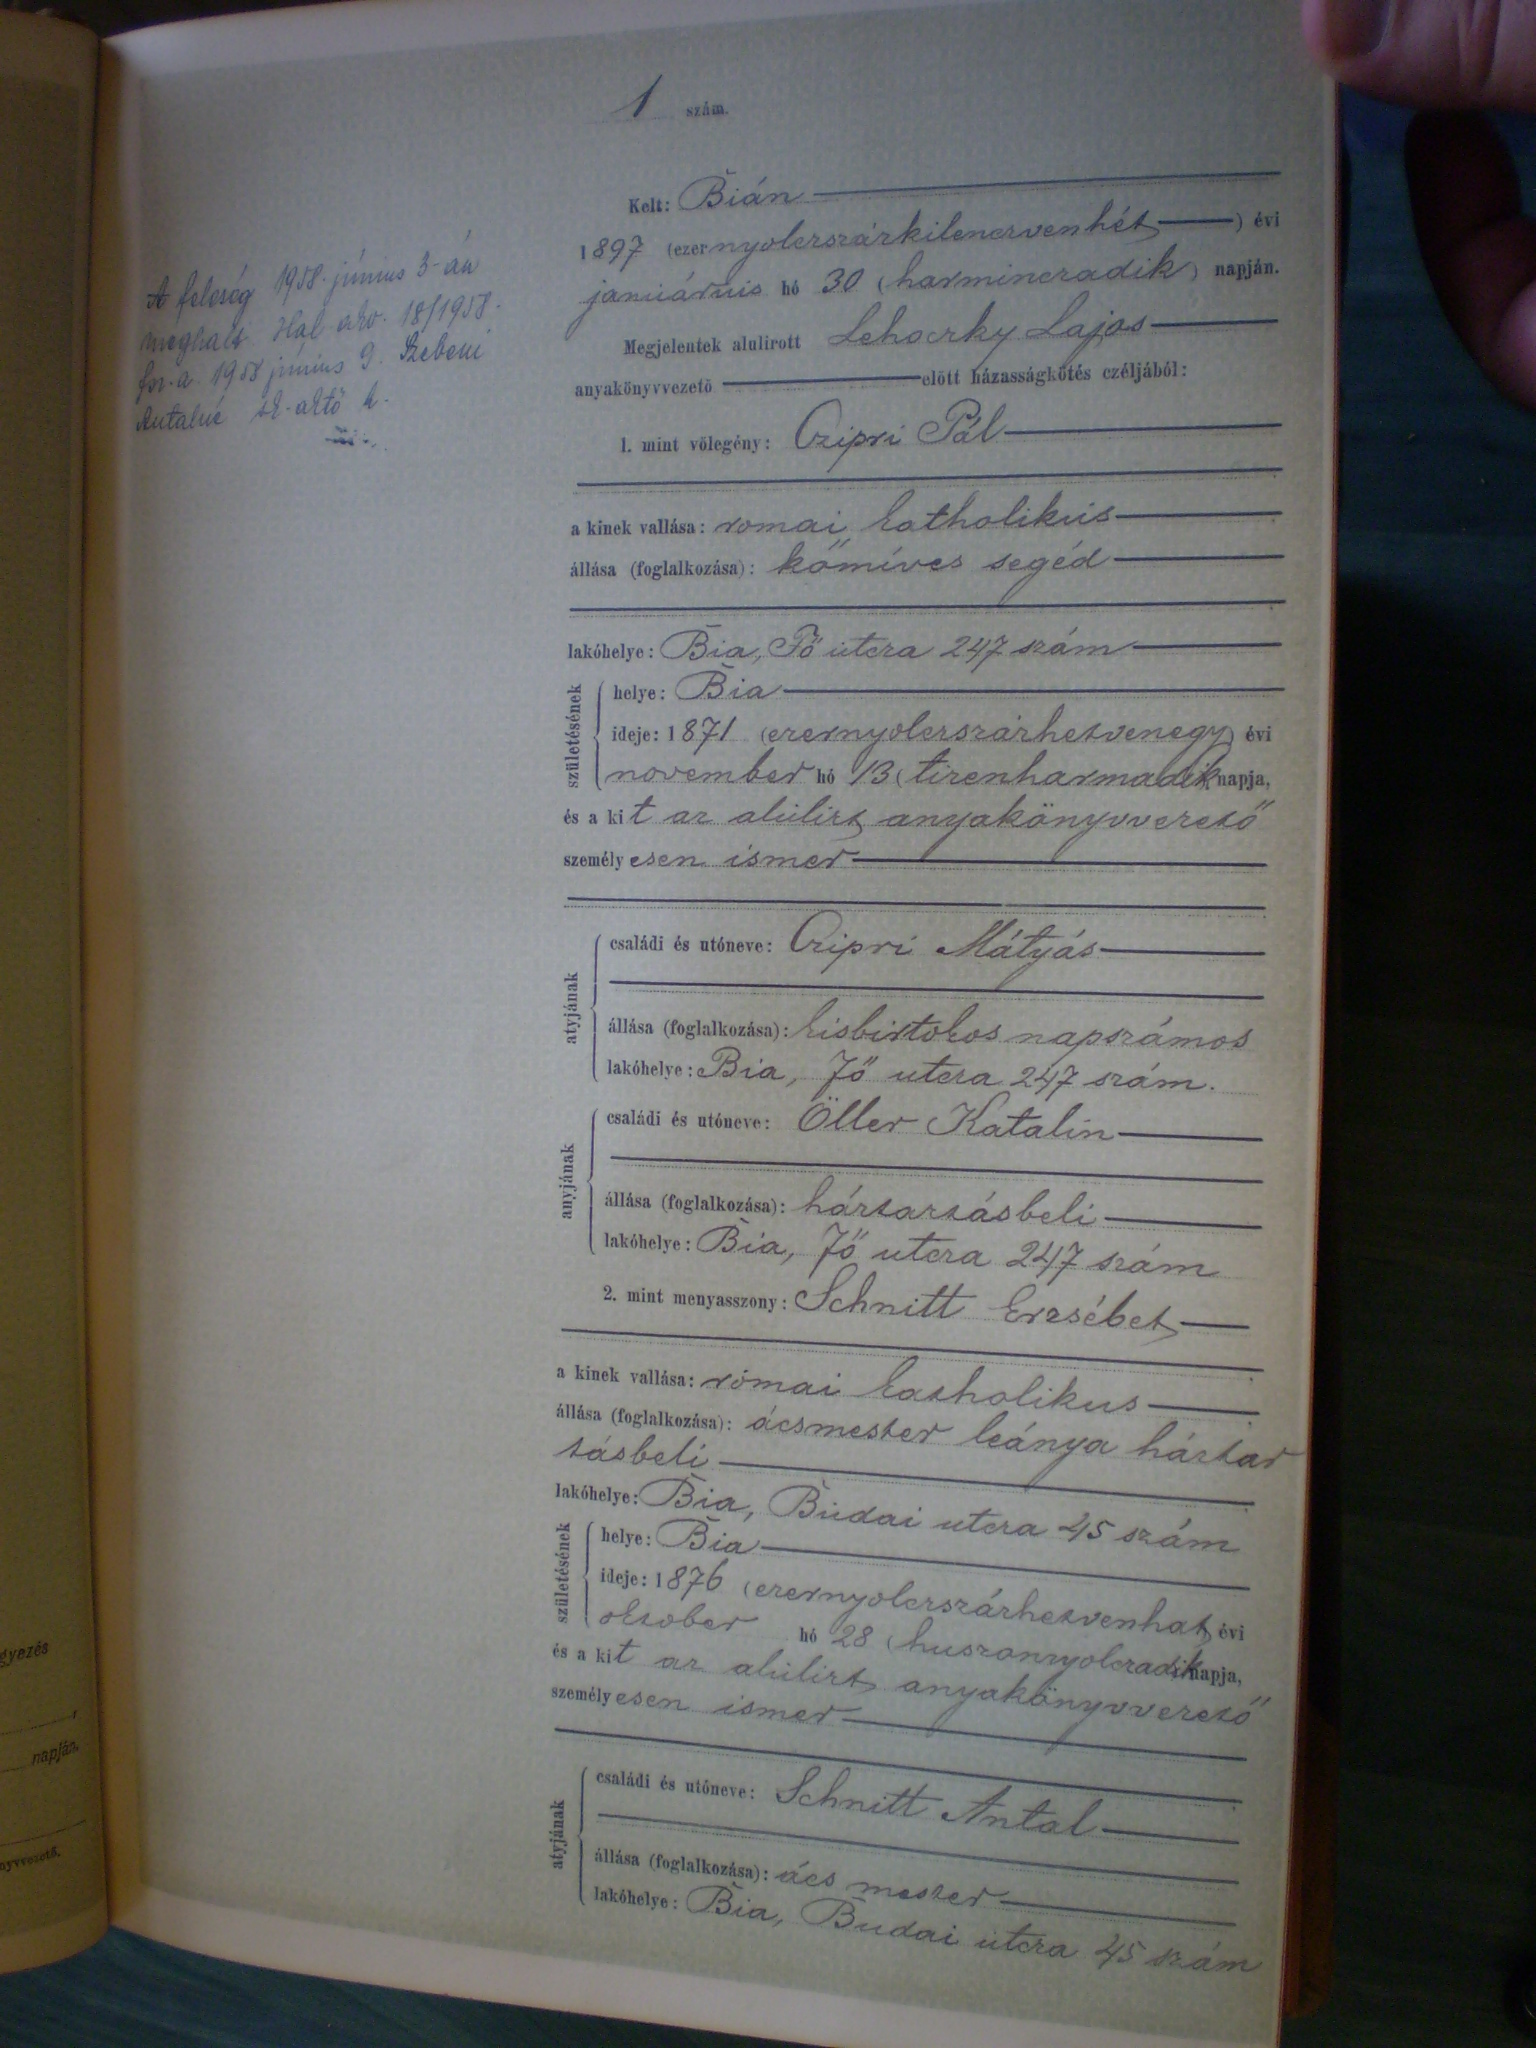 1 szám.
A feleség 1958. június 3-án
meghalt. Hal. akv. 18/1958.
1958 június 9. Szebeni
Antalné
Kelt: Bián
1897 (ezernyolczszázkilenczvenhét) évi
januárius hó 30 (harminczadik) napján.
Megjelentek alulirott Lehoczky Lajos
anyakönyvvezető előtt házasságkötés czéljából:
1. mint vőlegény: Czipri Pál
a kinek vallása: romai katholikus
állása (foglalkozása): kőmíves segéd
lakóhelye: Bia, Fő utcza 247 szám
születésének
helye: Bia
ideje: 1871 (ezernyolczszázhetvenegy) évi
november hó 13 (tizenharmadik) napja,
és a kit az alulirt anyakönyvvezető
személyesen ismer
atyjának
családi és utóneve: Czipri Mátyás
állása (foglalkozása): kisbirtokos napszámos
lakóhelye: Bia, Fő utcza 247 szám.
anyjának
családi és utóneve: Öller Katalin
állása (foglalkozása): háztartásbeli
lakóhelye: Bia, Fő utcza 247 szám
2. mint menyasszony: Schnitt Erzsébet
a kinek vallása: római katholikus
állása (foglalkozása): ácsmester leánya háztar
tásbeli
lakóhelye: Bia, Budai utcza 45 szám
születésének
helye: Bia
ideje: 1876 (ezernyolczszázhetvenhat) évi
oktober hó 28 (huszonnyolczadik) napja,
és a kit az alulirt anyakönyvvezető
személyesen ismer
atyjának
családi és utóneve: Schnitt Antal
állása (foglalkozása): ács mester
lakóhelye: Bia, Budai utcza 45 szám
gyezés
napján.
nyvvezető.